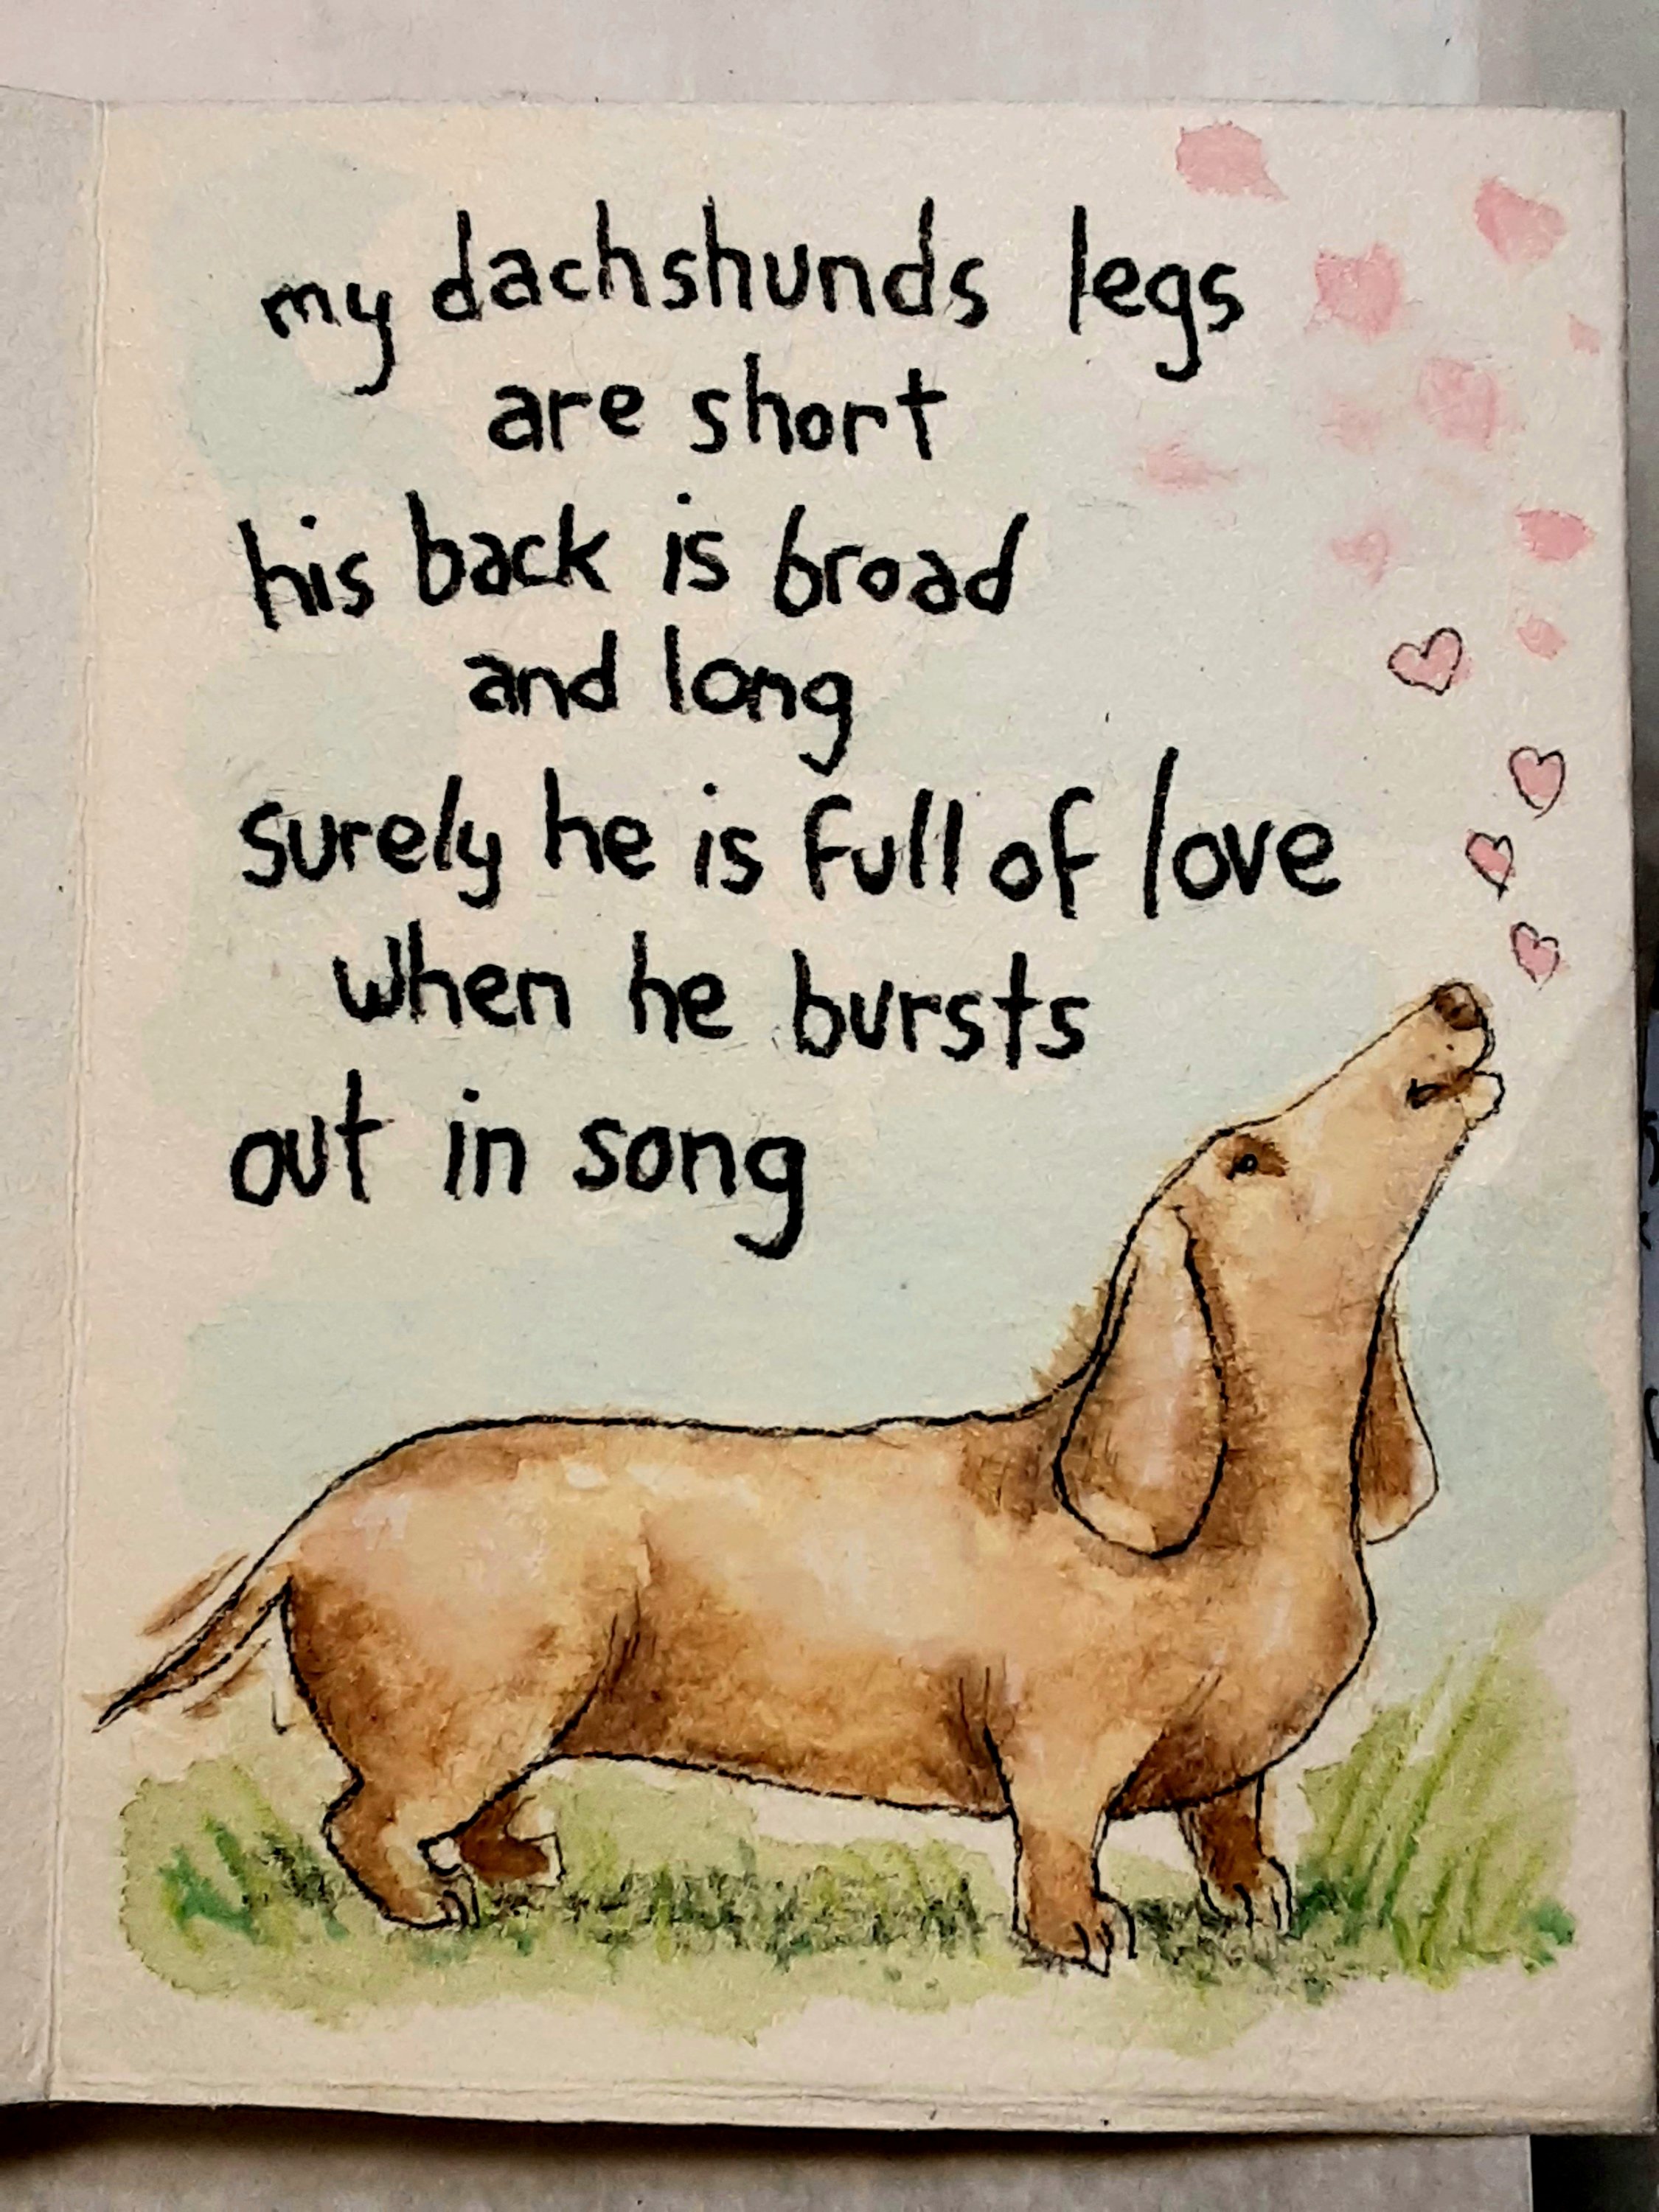 my dachshunds legs
are short
his back is broad
and long
surely he is full of love
when he bursts
out in song